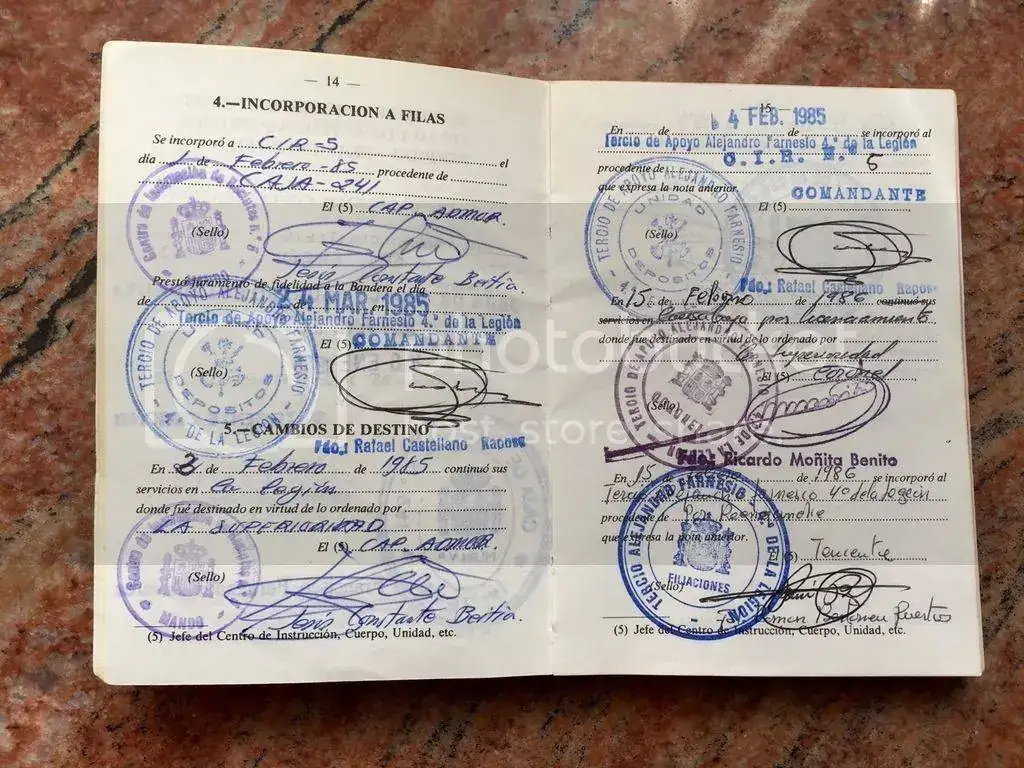 — 14 —
4.—INCORPORACION A FILAS
Se incorporó a CIR-5 el
día de Febrero-85 procedente de
CAJA-241
El (5) CAP. ADMOR.
(Sello)
Jesús Constante Beitia.
Prestó juramento de fidelidad a la Bandera el día
de MAR 1985 en
Tercio de Apoyo Alejandro Farnesio 4.º de la Legión
El (5) COMANDANTE
(Sello)
TERCIO DE APOYO ALEJANDRO FARNESIO
UNIDAD
DEPOSITOS
4.º DE LA LEGION
5.—CAMBIOS DE DESTINO
Fdo.: Rafael Castellano Raposo
En 2 de Febrero de 1985 continuó sus
servicios en La Legión
donde fué destinado en virtud de lo ordenado por
LA SUPERIORIDAD
El (5) CAP. ADMOR.
(Sello)
MANDO
Jesús Constante Beitia.
(5) Jefe del Centro de Instrucción, Cuerpo, Unidad, etc.
— 15 —
4 FEB. 1985
En de de se incorporó al
Tercio de Apoyo Alejandro Farnesio 4.º de la Legión
procedente de C.I.R. N.º 5
que expresa la nota anterior.
El (5) COMANDANTE
(Sello)
TERCIO DE APOYO ALEJANDRO FARNESIO
UNIDAD
DEPOSITOS
Fdo.: Rafael Castellano Raposo
En 15 de Febrero de 1986 continuó sus
servicios en baja por licenciamiento
donde fué destinado en virtud de lo ordenado por
Superioridad
El (5) Coronel
(Sello)
Fdo.: Ricardo Moñita Benito
En 15 de de 1986 se incorporó al
Tercio Alejandro Farnesio 4º de la Legión
procedente de Por Reenganche
que expresa la nota anterior.
El (5) Teniente
(Sello)
TERCIO ALEJANDRO FARNESIO 4.º DE LA LEGION
FILIACIONES
(5) Jefe del Centro de Instrucción, Cuerpo, Unidad, etc.
photobucket
host. store. share.